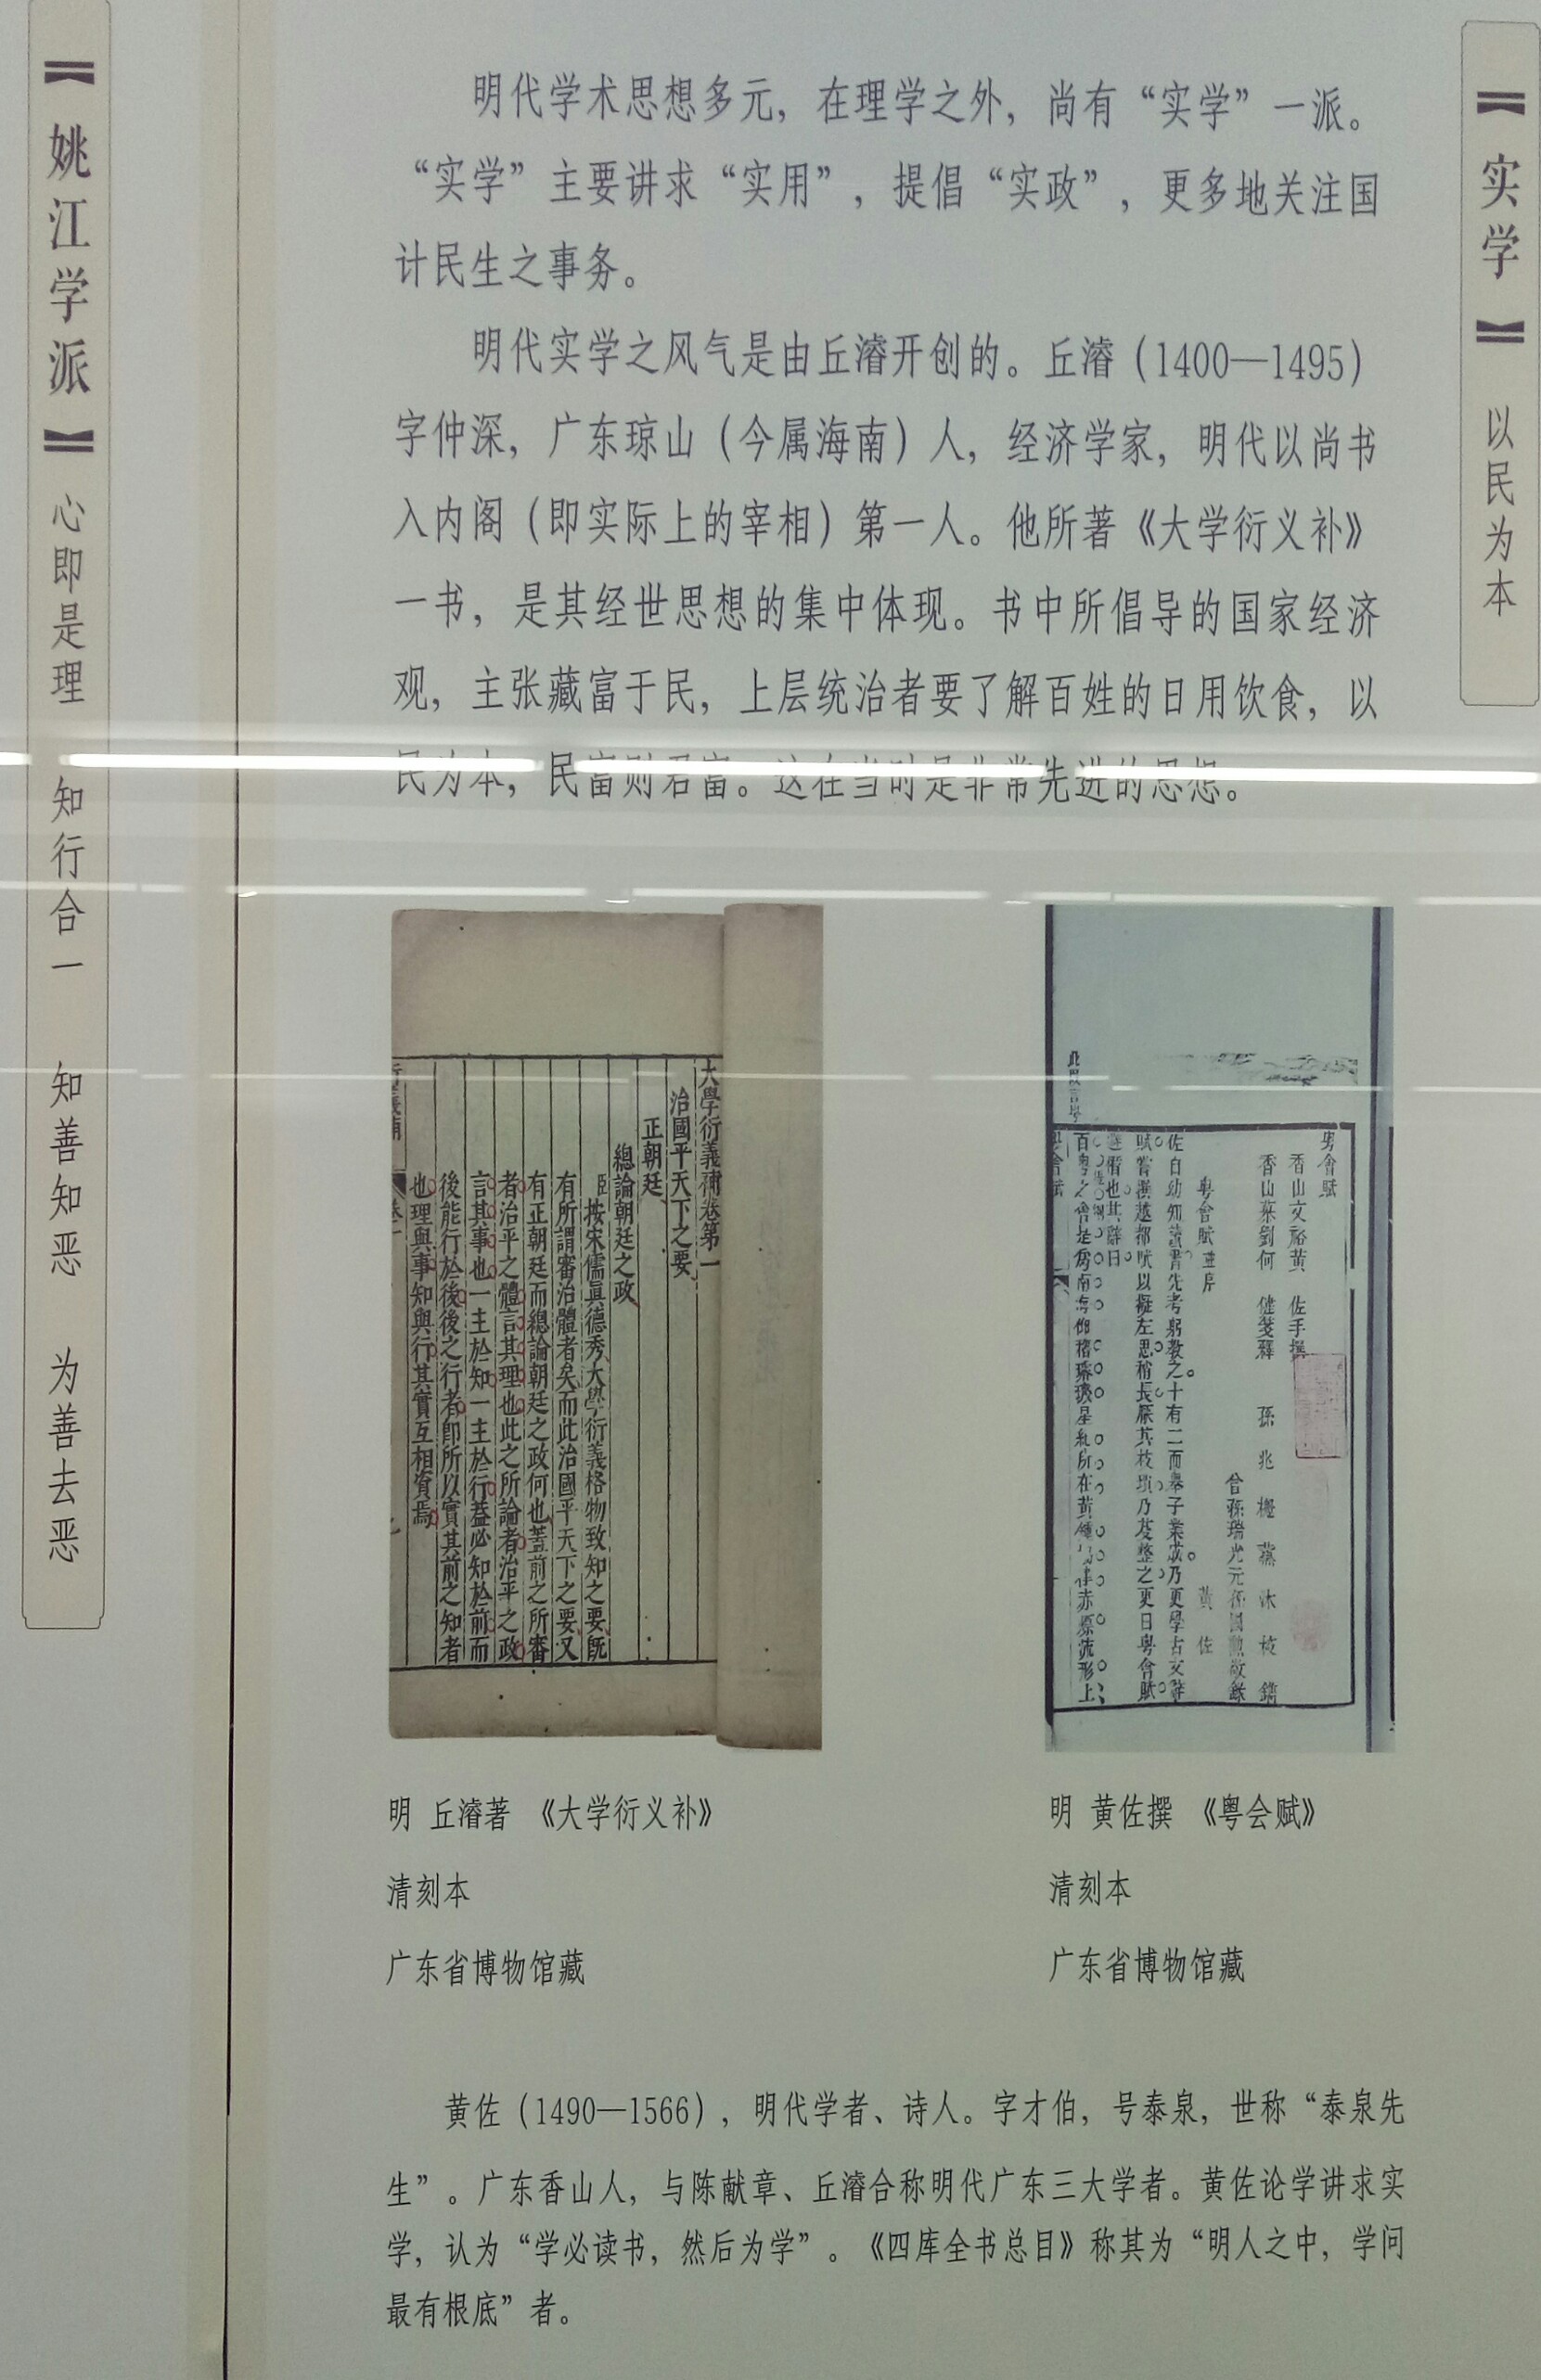 【姚江学派】心即是理 知行合一 知善知恶 为善去恶
【实学】以民为本
明代学术思想多元，在理学之外，尚有“实学”一派。
“实学”主要讲求“实用”，提倡“实政”，更多地关注国
计民生之事务。
明代实学之风气是由丘濬开创的。丘濬（1400—1495）
字仲深，广东琼山（今属海南）人，经济学家，明代以尚书
入内阁（即实际上的宰相）第一人。他所著《大学衍义补》
一书，是其经世思想的集中体现。书中所倡导的国家经济
观，主张藏富于民，上层统治者要了解百姓的日用饮食，以
民为本，民富则君富。这在当时是非常先进的思想。
大學衍義補卷第一
治國平天下之要
正朝廷
總論朝廷之政
臣按宋儒眞德秀大學衍義格物致知之要旣
有所謂審治體者矣而此治國平天下之要又
有正朝廷而總論朝廷之政何也蓋前之所審
者治平之體言其理也此之所論者治平之政
言其事也一主於知一主於行蓋必知於前而
後能行於後後之行者卽所以實其前之知者
也理與事知與行其實互相資焉
粤會賦
香山文裕黃 佐手撰
粤會賦並序 黃 佐
佐自幼知讀書先考躬教之十有二而舉子業成乃更學古文辭
賦嘗撰越都賦以擬左思稍長厭其枝瑣乃芟整之更曰粤會賦
明 丘濬著 《大学衍义补》
清刻本
广东省博物馆藏
明 黄佐撰 《粤会赋》
清刻本
广东省博物馆藏
黄佐（1490—1566），明代学者、诗人。字才伯，号泰泉，世称“泰泉先
生”。广东香山人，与陈献章、丘濬合称明代广东三大学者。黄佐论学讲求实
学，认为“学必读书，然后为学”。《四库全书总目》称其为“明人之中，学问
最有根底”者。